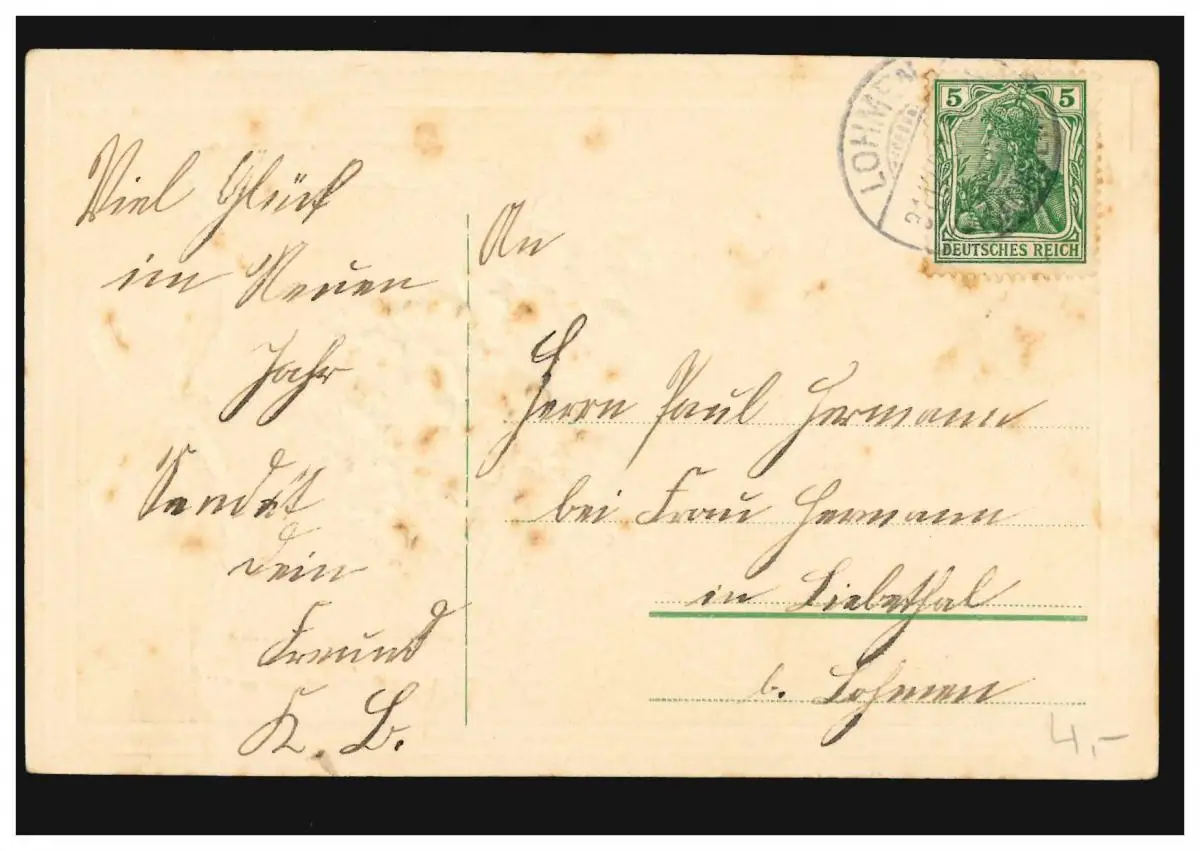 Viel Glück
im Neuen
Jahr
Sendet
Dein
Freund
K. B.
An
Herrn Paul Hermann
bei Frau Hermann
in Liebethal
b. Lohmen
5 5
DEUTSCHES REICH
LOHMEN
4,-